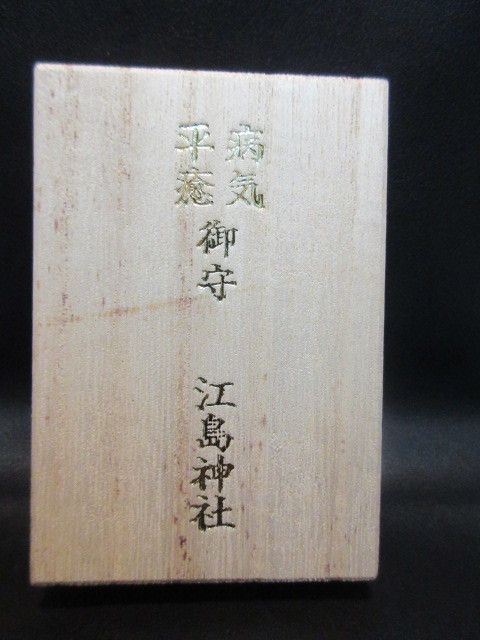 病気
平癒
御守
江島神社